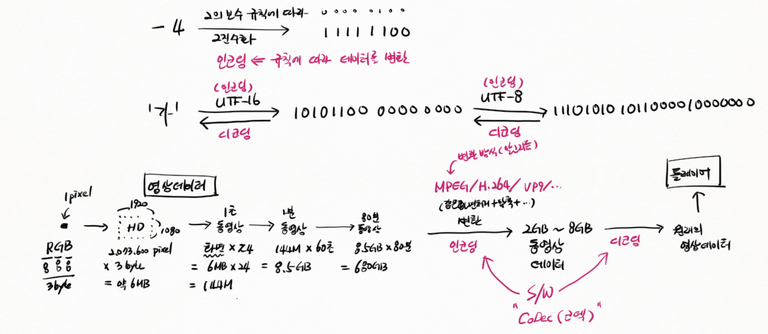 -4
2의 보수 규칙에 따라
2진수화
0000 0100
11111100
인코딩 ⇐ 규칙에 따라 데이터를 변환
'가'
(인코딩)
UTF-16
디코딩
10101100 00000000
(인코딩)
UTF-8
디코딩
11101010 10110000 10000000
변환 방식(알고리즘)
MPEG/H.264/VP9/...
변환
인코딩
2GB ~ 8GB
동영상
데이터
디코딩
원래의
영상데이터
플레이어
S/W
"Codec(코덱)"
영상데이터
1 pixel
RGB
8 8 8
3byte
1920
HD
1080
2,073,600 pixel
× 3 byte
= 약 6MB
1초
동영상
화면 × 24
= 6MB × 24
= 144M
1분
동영상
144M × 60초
= 8.5GB
80분
동영상
8.5GB × 80분
= 680GB